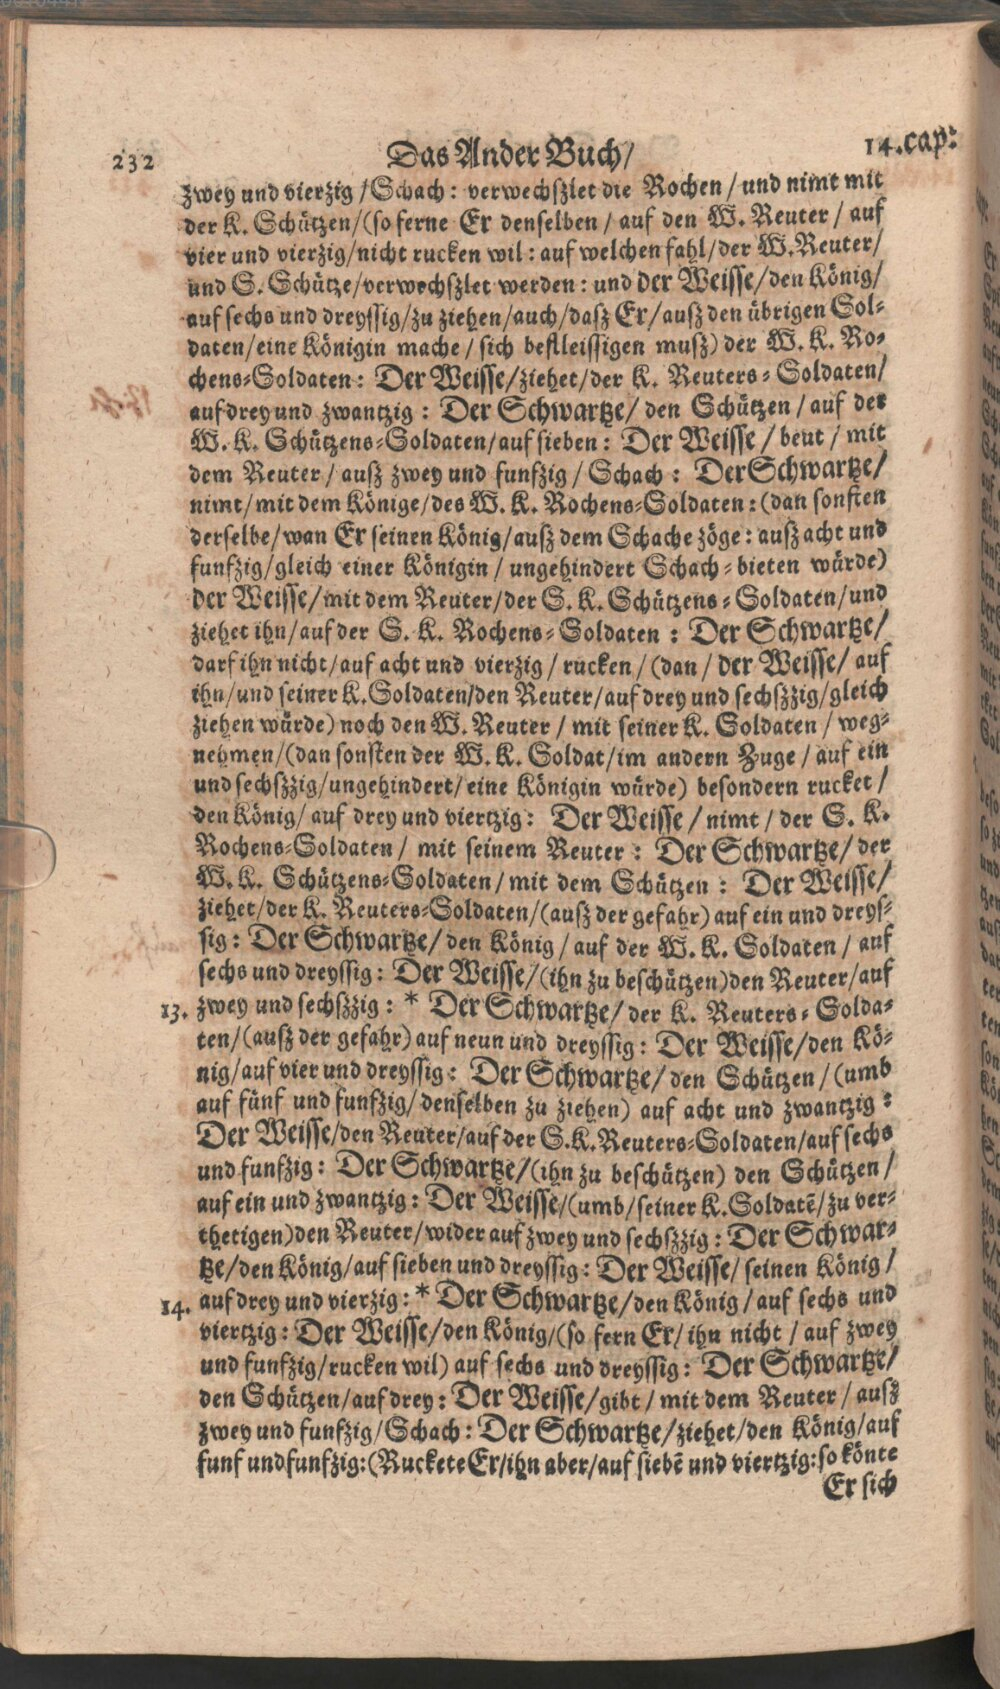 232 Das Ander Buch/ 14.cap:
zwey und vierzig/Schach: verwechszlet die Rochen/und nimt mit
der K. Schützen/(so ferne Er denselben/auf den W. Reuter/auf
vier und vierzig/nicht rucken wil: auf welchen fahl/der W.Reuter/
und S. Schütze/verwechszlet werden: und der Weisse/den König/
auf sechs und dreyssig/zu ziehen/auch/dasz Er/ausz den übrigen Sol-
daten/eine Königin mache/sich befleissigen musz) der W. K. Ro-
chens-Soldaten: Der Weisse/ziehet/der K. Reuters-Soldaten/
auf drey und zwantzig: Der Schwartze/den Schützen/auf der
W. K. Schützens-Soldaten/auf sieben: Der Weisse/beut/mit
dem Reuter/ausz zwey und funfzig/Schach: Der Schwartze/
nimt/mit dem Könige/des W. K. Rochens-Soldaten: (dan sonsten
derselbe/wan Er seinen König/ausz dem Schache zöge: ausz acht und
funfzig/gleich einer Königin/ungehindert Schach-bieten würde)
der Weisse/mit dem Reuter/der S. K. Schützens-Soldaten/und
ziehet ihn/auf der S. K. Rochens-Soldaten: Der Schwartze/
darf ihn nicht/auf acht und vierzig/rucken/(dan/der Weisse/auf
ihn/und seiner K.Soldaten/den Reuter/auf drey und sechszzig/gleich
ziehen würde) noch den W. Reuter/mit seiner K. Soldaten/weg-
nehmen/(dan sonsten der W. K. Soldat/im andern Zuge/auf ein
und sechszzig/ungehindert/eine Königin würde) besondern rucket/
den König/auf drey und viertzig: Der Weisse/nimt/der S. K.
Rochens-Soldaten/mit seinem Reuter: Der Schwartze/der
W. K. Schützens-Soldaten/mit dem Schützen: Der Weisse/
ziehet/der K. Reuters-Soldaten/(ausz der gefahr) auf ein und dreys-
sig: Der Schwartze/den König/auf der W. K. Soldaten/auf
sechs und dreyssig: Der Weisse/(ihn zu beschützen)den Reuter/auf
13. zwey und sechszzig: * Der Schwartze/der K. Reuters-Solda-
ten/(ausz der gefahr) auf neun und dreyssig: Der Weisse/den Kö-
nig/auf vier und dreyssig: Der Schwartze/den Schützen/(umb
auf fünf und funfzig/denselben zu ziehen) auf acht und zwantzig:
Der Weisse/den Reuter/auf der S.K.Reuters-Soldaten/auf sechs
und funfzig: Der Schwartze/(ihn zu beschützen) den Schützen/
auf ein und zwantzig: Der Weisse/(umb/seiner K.Soldatē/zu ver-
thetigen)den Reuter/wider auf zwey und sechszzig: Der Schwar-
tze/den König/auf sieben und dreyssig: Der Weisse/seinen König/
14. auf drey und vierzig: * Der Schwartze/den König/auf sechs und
viertzig: Der Weisse/den König/(so fern Er/ihn nicht/auf zwey
und funfzig/rucken wil) auf sechs und dreyssig: Der Schwartze/
den Schützen/auf drey: Der Weisse/gibt/mit dem Reuter/ausz
zwey und funfzig/Schach: Der Schwartze/ziehet/den König/auf
funf und funfzig:(Ruckete Er/ihn aber/auf siebē und viertzig:so könte
Er sich